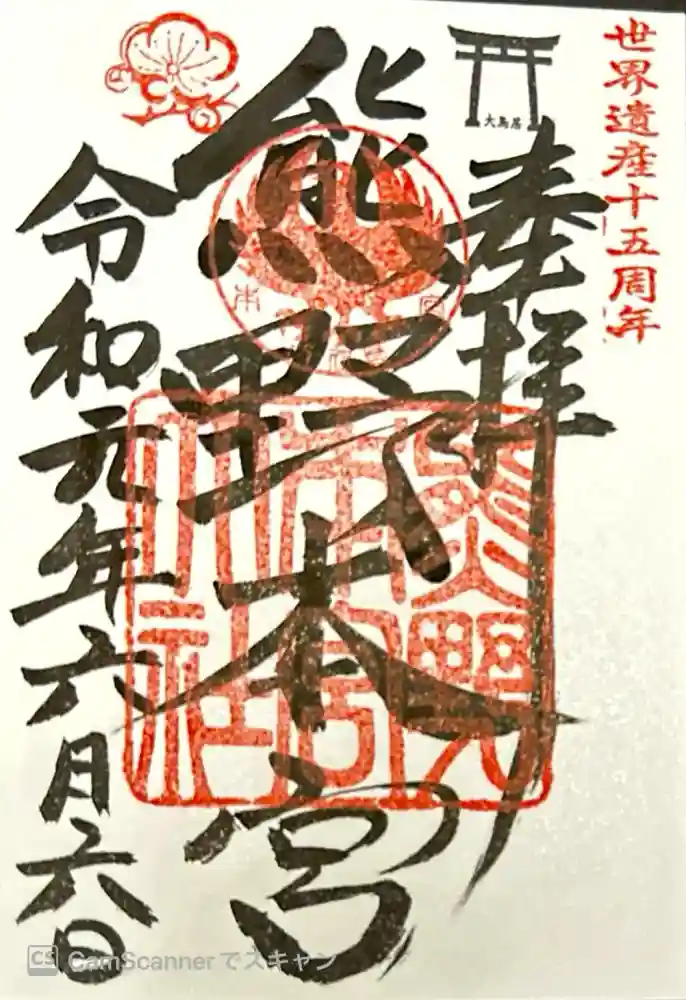 世界遺産十五周年
大鳥居
奉拝
熊野本宮
熊野
本宮
大社
令和元年六月六日
CS CamScannerでスキャン